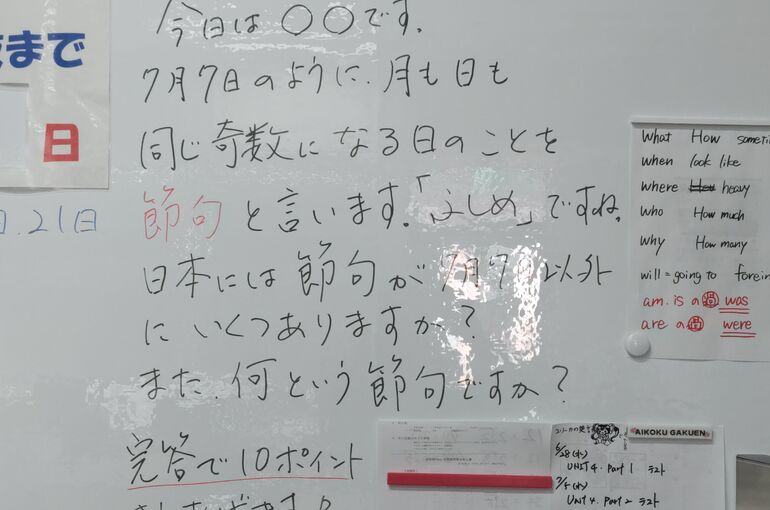 今日は〇〇です。
7月7日のように.月も日も
同じ奇数になる日のことを
節句と言います。「ふしめ」ですね。
日本には節句が7月7日以外
にいくつありますか?
また.何という節句ですか?
完答で10ポイント
まで
日
日.21日
What How
when look like
where heavy
who How much
why How many
will=going to forein
am. is a過 was
are a過 were
AIKOKU GAKUEN
6/28(水)
UNIT4. Part 1 テスト
7/5(水)
UNIT4. Part 2 テスト